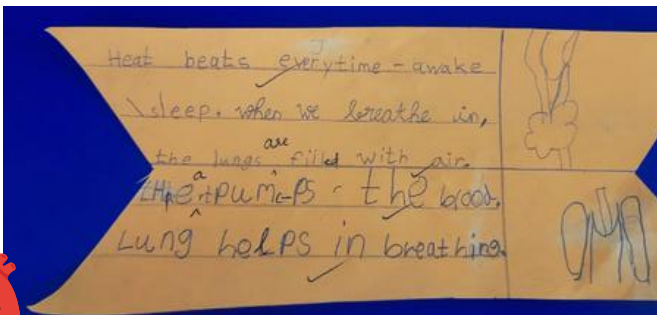 Heat beats everytime - awake
\sleep. when we breathe in,
the lungs are filled with air.
Heart pumps - the blood.
Lung helps in breathing.